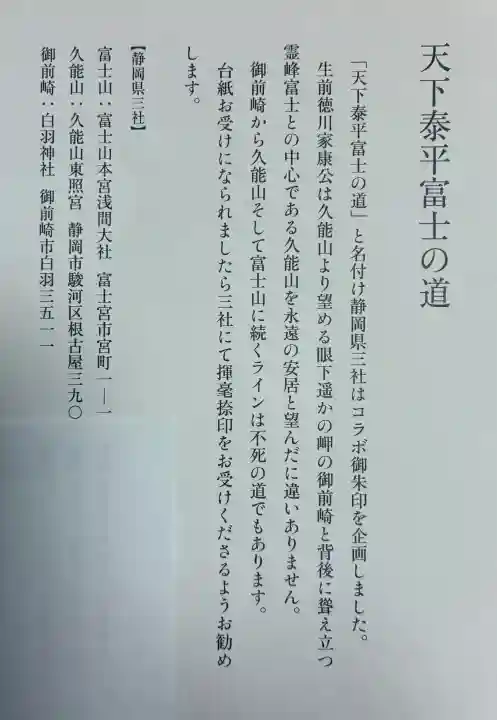 天下泰平富士の道
「天下泰平富士の道」と名付け静岡県三社はコラボ御朱印を企画しました。
生前徳川家康公は久能山より望める眼下遥かの岬の御前崎と背後に聳え立つ
霊峰富士との中心である久能山を永遠の安居と望んだに違いありません。
御前崎から久能山そして富士山に続くラインは不死の道でもあります。
台紙お受けになられましたら三社にて揮毫捺印をお受けくださるようお勧め
します。
【静岡県三社】
富士山：富士山本宮浅間大社 富士宮市宮町一―一
久能山：久能山東照宮 静岡市駿河区根古屋三九〇
御前崎：白羽神社 御前崎市白羽三五一一